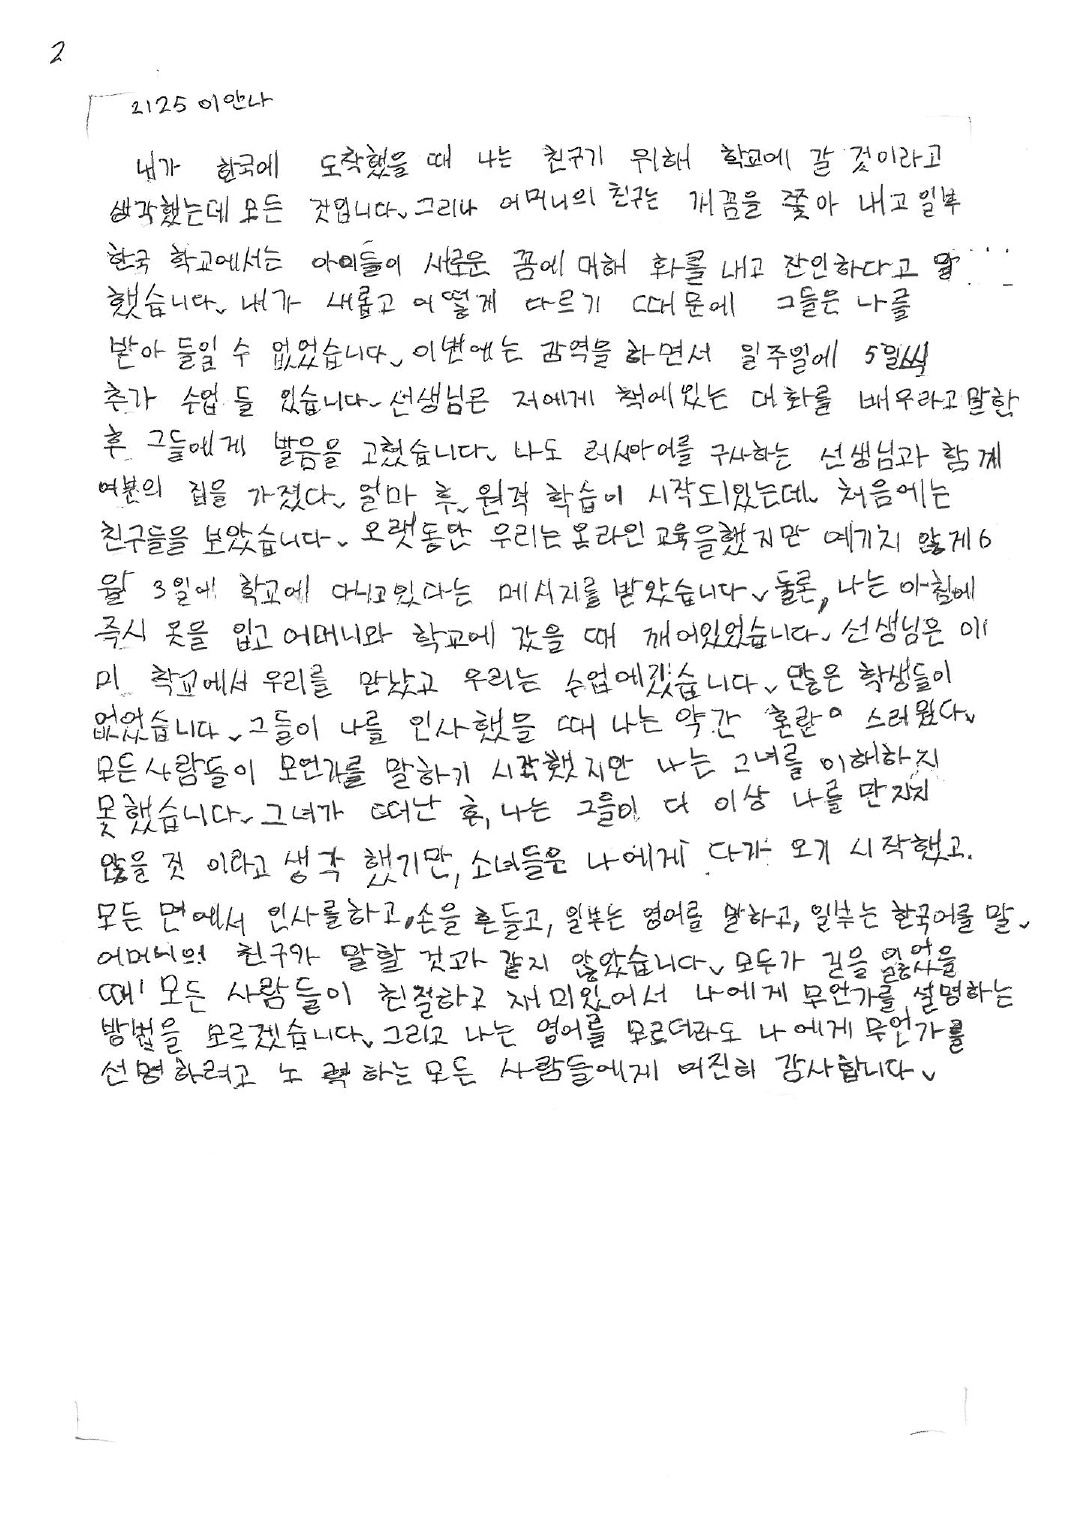 2
2125 이안나
내가 한국에 도착했을 때 나는 친구기 위해 학교에 갈 것이라고
생각했는데 모든 것입니다. 그러나 어머니의 친구는 깨꿈을 쫓아 내고 일부
한국 학교에서는 아이들이 새로운 꿈에 대해 화를 내고 잔인하다고 말
했습니다. 내가 새롭고 어떻게 다르기 때문에 그들은 나를
받아 들일 수 없었습니다. 이번에는 감역을 하면서 일주일에 5일씩
추가 수업 들 있습니다. 선생님은 저에게 책에있는 대화를 배우라고 말한
후 그들에게 발음을 고쳤습니다. 나도 러시아어를 구사하는 선생님과 함께
여분의 집을 가졌다. 얼마 후. 원격 학습이 시작되있는데. 처음에는
친구들을 보았습니다. 오랫동안 우리는 온라인 교육을했지만 예기치 않게 6
월 3일에 학교에 다니고있다는 메시지를 받았습니다. 물론, 나는 아침에
즉시 옷을 입고 어머니와 학교에 갔을 때 깨어있었습니다. 선생님은 이
미 학교에서 우리를 만났고 우리는 수업에갔습니다. 많은 학생들이
없었습니다. 그들이 나를 인사했을 때 나는 약간 혼란 스러웠다.
모든사람들이 모언가를 말하기 시작했지만 나는 그녀를 이해하지
못했습니다. 그녀가 떠난 후, 나는 그들이 더 이상 나를 만지지
않을 것 이라고 생각 했기만, 소녀들은 나에게 다가 오기 시작했고.
모든 면에서 인사를하고, 손을 흔들고, 일부는 영어를 말하고, 일부는 한국어를 말.
어머니의 친구가 말할 것과 같지 않았습니다. 모두가 길을 잃었을
때 모든 사람들이 친절하고 재미있어서 나에게 무언가를 설명하는
방법을 모르겠습니다. 그리고 나는 영어를 모르더라도 나에게 무언가를
선명하려고 노력하는 모든 사람들에게 여전히 감사합니다.